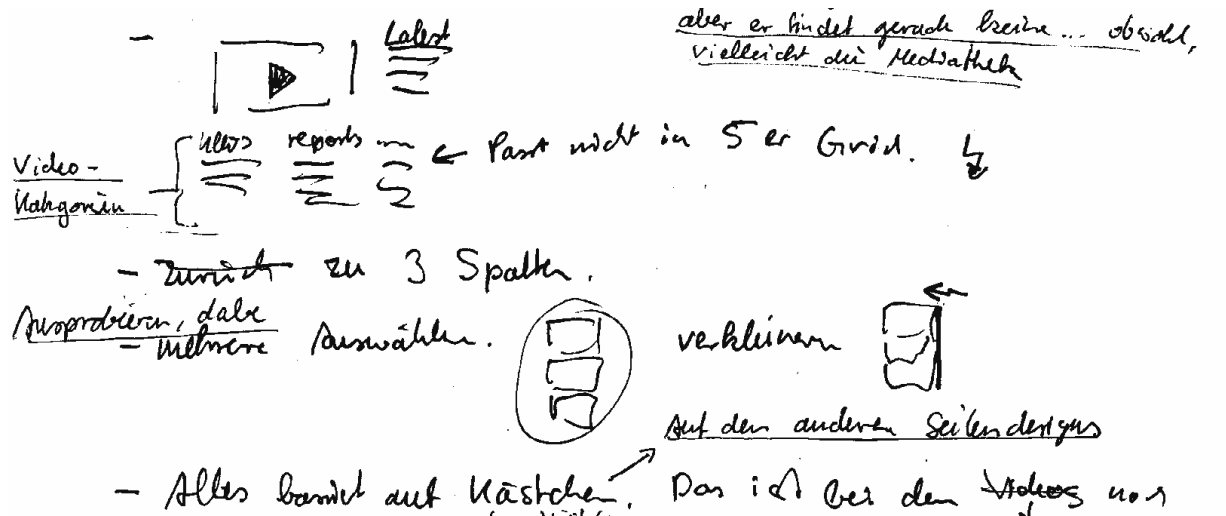 - Latest
aber er findet gerade keine... obwohl,
vielleicht die Mediathek
news reports
← Passt nicht in 5er Grid.
Video-
Kategorien
- Zurück zu 3 Spalten.
Ausprobieren, dabe
- mehrere Auswählen. verkleinern
Auf den anderen Seitendesigns
- Alles basiert auf Kästchen. Das ist bei den Videos